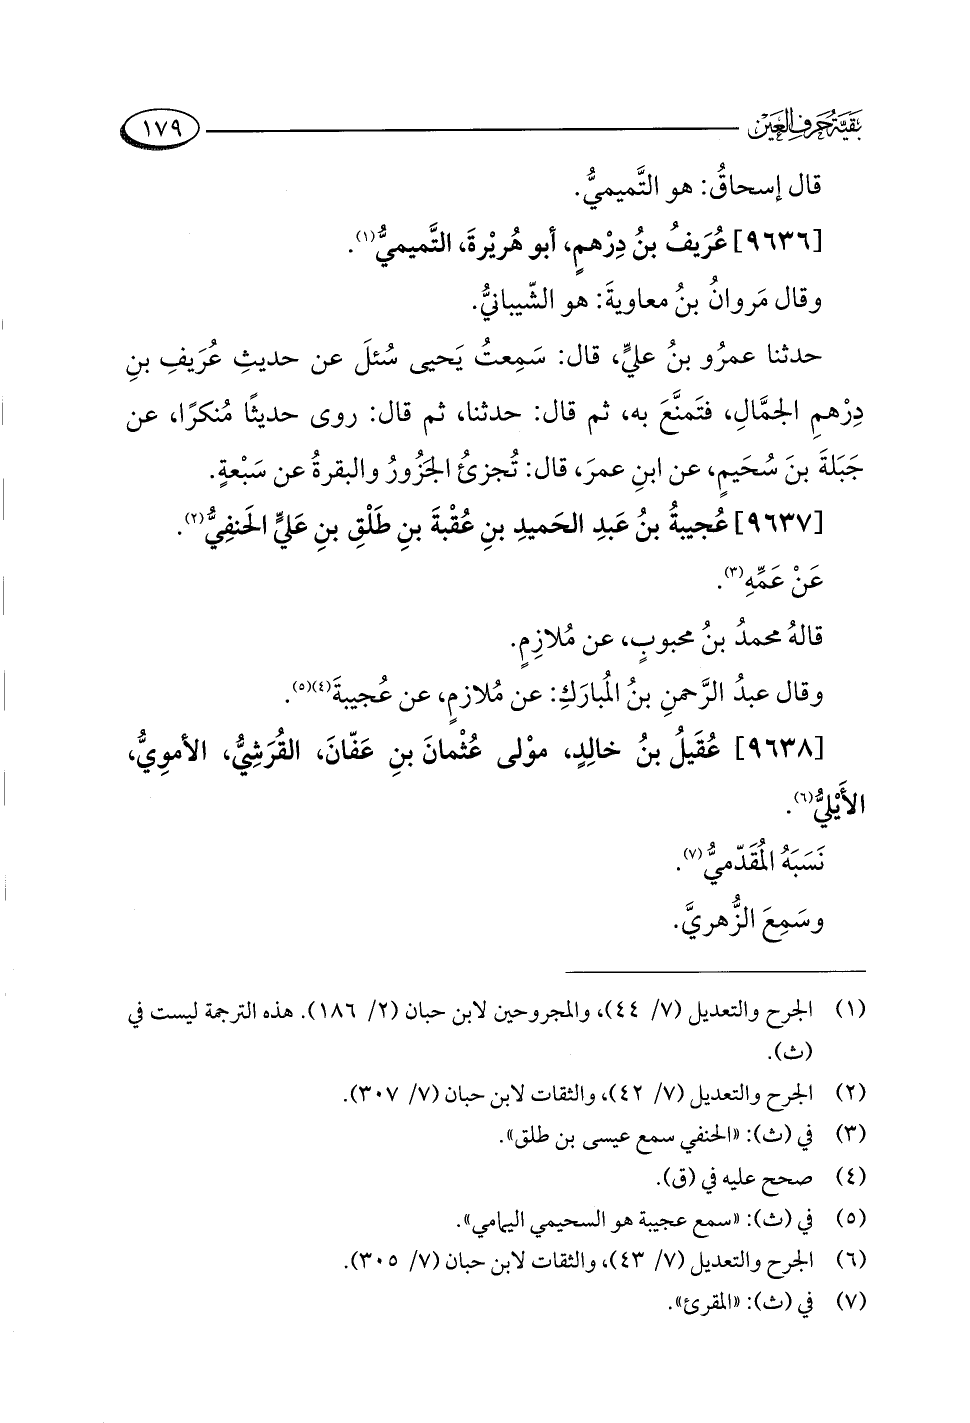 بقية حرف العين
١٧٩
قال إسحاقُ: هو التَّميميُّ.
[٩٦٣٦] عُرَيفُ بنُ دِرْهمٍ، أبو هُريْرةَ، التَّميميُّ(١).
وقال مَروانُ بنُ معاويةَ: هو الشّيبانيُّ.
حدثنا عمرُو بنُ عليٍّ، قال: سَمِعتُ يَحيى سُئلَ عن حديثِ عُرَيفِ بنِ
دِرْهمِ الجمَّالِ، فتَمنَّعَ به، ثم قال: حدثنا، ثم قال: روى حديثًا مُنكرًا، عن
جَبَلةَ بنَ سُحَيمٍ، عن ابنِ عمرَ، قال: تُجزئُ الجَزُورُ والبقرةُ عن سَبْعةٍ.
[٩٦٣٧] عُجيبةُ بنُ عَبدِ الحَميدِ بنِ عُقْبةَ بنِ طَلْقِ بنِ عَليٍّ الحَنفِيُّ(٢).
عَنْ عَمِّهِ(٣).
قالهُ محمدُ بنُ محبوبٍ، عن مُلازِمٍ.
وقال عبدُ الرَّحمنِ بنُ المُبارَكِ: عن مُلازمٍ، عن عُجيبةَ(٤)(٥).
[٩٦٣٨] عُقَيلُ بنُ خالِدٍ، موْلى عُثْمانَ بنِ عَفّانَ، القُرَشِيُّ، الأموِيُّ،
الأَيْليُّ(٦).
نَسَبَهُ المُقَدّميُّ(٧).
وسَمِعَ الزُّهريَّ.
(١) الجرح والتعديل (٧/ ٤٤)، والمجروحين لابن حبان (٢/ ١٨٦). هذه الترجمة ليست في
(ث).
(٢) الجرح والتعديل (٧/ ٤٢)، والثقات لابن حبان (٧/ ٣٠٧).
(٣) في (ث): «الحنفي سمع عيسى بن طلق».
(٤) صحح عليه في (ق).
(٥) في (ث): «سمع عجيبة هو السحيمي اليمامي».
(٦) الجرح والتعديل (٧/ ٤٣)، والثقات لابن حبان (٧/ ٣٠٥).
(٧) في (ث): «المقرئ».